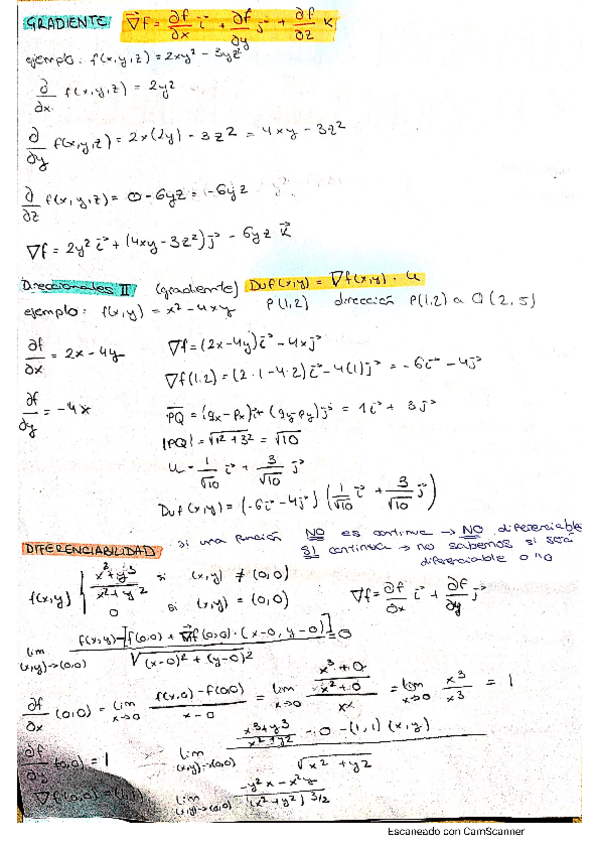 GRADIENTE ∇f = ∂f/∂x i + ∂f/∂y j + ∂f/∂z k
ejemplo: f(x,y,z) = 2xy² - 3yz²
∂/∂x f(x,y,z) = 2y²
∂/∂y f(x,y,z) = 2x(2y) - 3z² = 4xy - 3z²
∂/∂z f(x,y,z) = 0 - 6yz = -6yz
∇f = 2y² i + (4xy - 3z²) j - 6yz k
Direccionales II (gradiente) Duf(x,y) = ∇f(x,y) · u
ejemplo: f(x,y) = x² - 4xy P(1,2) dirección P(1,2) a Q(2,5)
∂f/∂x = 2x - 4y ∇f = (2x - 4y) i - 4x j
∇f(1,2) = (2·1 - 4·2) i - 4(1) j = -6i - 4j
∂f/∂y = -4x
PQ = (qx - px) i + (qy - py) j = 1i + 3j
|PQ| = √1² + 3² = √10
u = 1/√10 i + 3/√10 j
Duf(x,y) = (-6i - 4j) (1/√10 i + 3/√10 j)
DIFERENCIABILIDAD si una función NO es continua → NO diferenciable
SI continua → no sabemos si será
diferenciable o no
f(x,y) { x³ + y³ / x² + y² si (x,y) ≠ (0,0)
0 si (x,y) = (0,0)
∇f = ∂f/∂x i + ∂f/∂y j
lim (x,y)→(0,0) f(x,y) - [f(0,0) + ∇f(0,0) · (x-0, y-0)] / √(x-0)² + (y-0)² = 0
∂f/∂x (0,0) = lim x→0 f(x,0) - f(0,0) / x - 0 = lim x→0 x³ + 0 / x² + 0 / x = lim x→0 x³/x³ = 1
∂f/∂y (0,0) = 1 lim (x,y)→(0,0) x³ + y³ / x² + y² - 0 - (1,1)(x,y) / √x² + y²
∇f(0,0) = (1,1) lim (x,y)→(0,0) -y²x - x²y / (x² + y²)^3/2
Escaneado con CamScanner